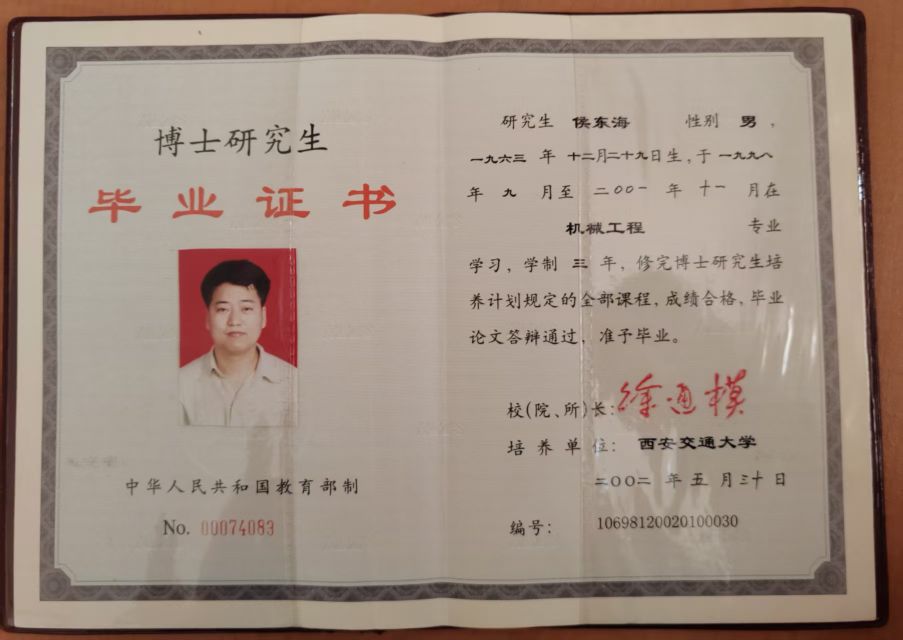 博士研究生
毕业证书
中华人民共和国教育部制
No. 00074083
研究生 侯东海 性别 男，
一九六三 年 十二月二十九日生，于 一九九八
年 九 月至 二〇〇一 年 十一 月在
机械工程 专业
学习，学制 三 年，修完博士研究生培
养计划规定的全部课程，成绩合格，毕业
论文答辩通过，准予毕业。
校(院、所)长：徐通模
培养单位：西安交通大学
二〇〇二 年 五 月三十日
编号：10698120020100030